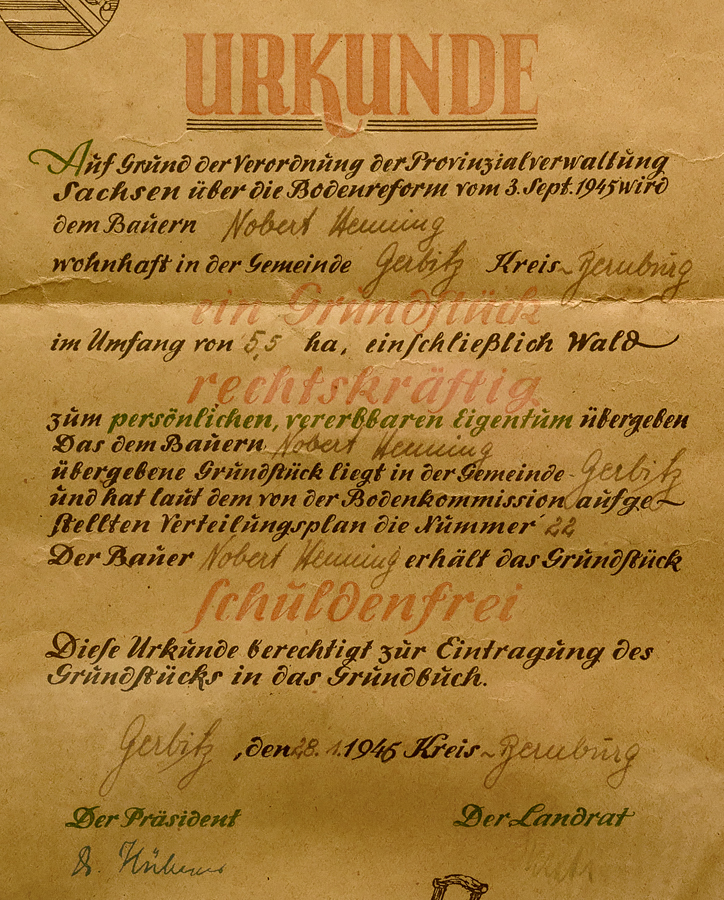 URKUNDE
Auf Grund der Verordnung der Provinzialverwaltung
Sachsen über die Bodenreform vom 3. Sept. 1945 wird
dem Bauern Nobert Henning
wohnhaft in der Gemeinde Gerbitz Kreis Bernburg
ein Grundstück
im Umfang von 5,5 ha, einschließlich Wald
rechtskräftig
zum persönlichen, vererbbaren Eigentum übergeben
Das dem Bauern Nobert Henning
übergebene Grundstück liegt in der Gemeinde Gerbitz
und hat laut dem von der Bodenkommission aufge-
stellten Verteilungsplan die Nummer 22
Der Bauer Nobert Henning erhält das Grundstück
schuldenfrei
Diese Urkunde berechtigt zur Eintragung des
Grundstücks in das Grundbuch.
Gerbitz, den 28. 1. 1946 Kreis Bernburg
Der Präsident Der Landrat